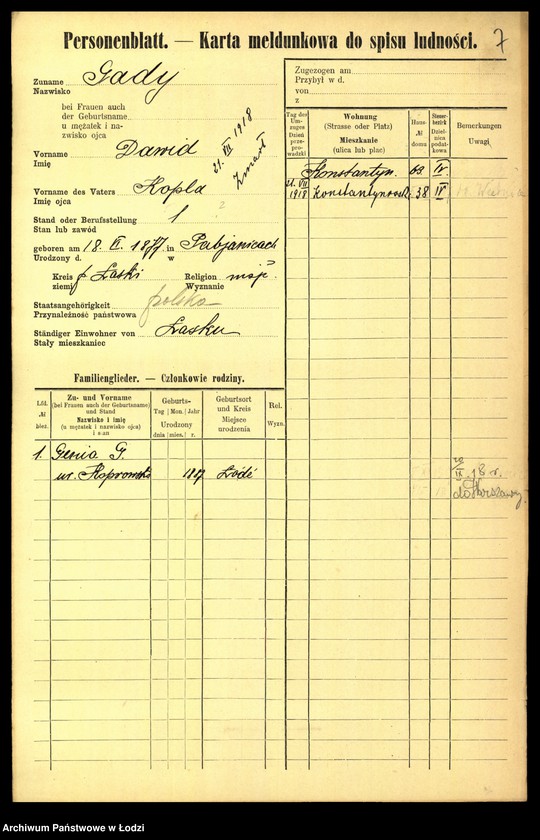 Personenblatt. — Karta meldunkowa do spisu ludności.
7
Zuname Gady
Nazwisko
bei Frauen auch
der Geburtsname
u mężatek i na-
zwisko ojca
Vorname Dawid
Imię
21. VII 1918
Zmarł
Vorname des Vaters Kopla
Imię ojca
Stand oder Berufsstellung
Stan lub zawód
geboren am 18. 1877 in Pabjanicach
Urodzony d. w
Kreis p. Łaski Religion mojż.
ziemi Wyznanie
Staatsangehörigkeit polska
Przynależność państwowa
Ständiger Einwohner von Łasku
Stały mieszkaniec
Zugezogen am
Przybył w d.
von
z
Tag des Um-zuges Dzień prze-prowadzki
Wohnung (Strasse oder Platz) Mieszkanie (ulica lub plac)
Haus-№ domu
Steuer-bezirk Dzielnica podatkowa
Bemerkungen Uwagi
Konstantyn. 63 IV.
21. VII 1918 Konstantynowsk. 38 IV
Familienglieder. — Członkowie rodziny.
Lfd. № bież.
Zu- und Vorname (bei Frauen auch der Geburtsname) und Stand Nazwisko i imię (u mężatek i nazwisko ojca) i stan
Geburts- Tag Mon. Jahr Urodzony dnia mies. r.
Geburtsort und Kreis Miejsce urodzenia
Rel. Wyzn.
1. Genia G.
ur. Koprowska Łódź
IX 18 r.
do Warszawy
Archiwum Państwowe w Łodzi